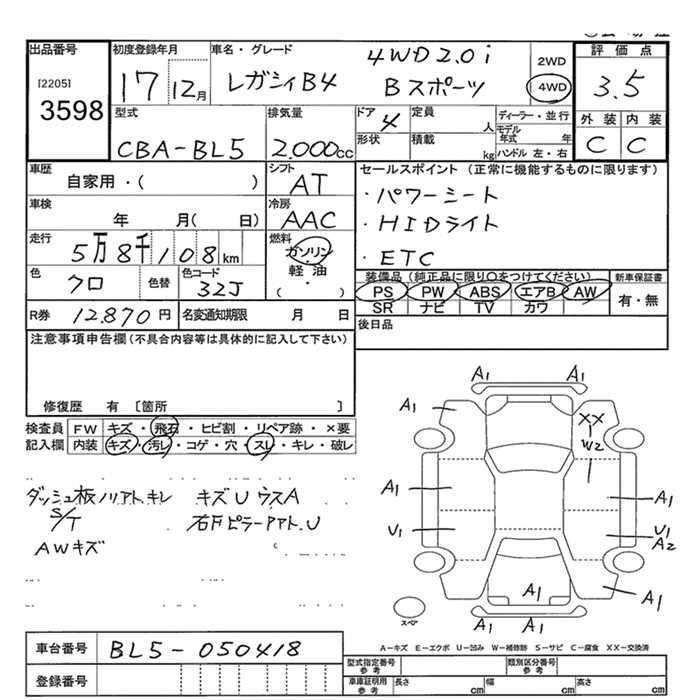 出品番号
[2205]
3598
初度登録年月
17 12月
車名・グレード
レガシィB4
4WD2.0i
Bスポーツ
2WD
4WD
評価点
3.5
外装 内装
C C
型式
CBA-BL5
排気量
2.000cc
ドア
4
形状
定員
人
積載
kg
ディーラー・並行
モデル年式 年
ハンドル 左・右
車歴
自家用・( )
シフト
AT
セールスポイント (正常に機能するものに限ります)
・パワーシート
・HIDライト
・ETC
車検
年 月( 日)
冷房
AAC
走行
5万8千108km
燃料
ガソリン
・
軽油
( ・ )
色
クロ
色替
色コード
32J
装備品(純正品に限り○をつけてください)
PS PW ABS エアB AW
SR ナビ TV カワ
新車保証書
有・無
R券 12.870円
名変通知期限 月 日
後日品
注意事項申告欄(不具合内容等は具体的に記入して下さい)
修復歴 有 〔箇所 〕
検査員
記入欄
FW キズ・飛石・ヒビ割・リペア跡・×要
内装 キズ・汚レ・コゲ・穴・スレ・キレ・破レ
キズU ウスA
S/T
AWキズ
A1 A1
A1
XX
W2
A1
A1
U1
U1
A2
A1
A1
A1 A1
スペア
A-キズ E-エクボ U-凹み W-補修跡 S-サビ C-腐食 XX-交換済
車台番号
BL5-050418
登録番号
型式指定番号
参考
類別区分番号
参考
車庫証明用
参考
長さ cm
幅 cm
高さ cm